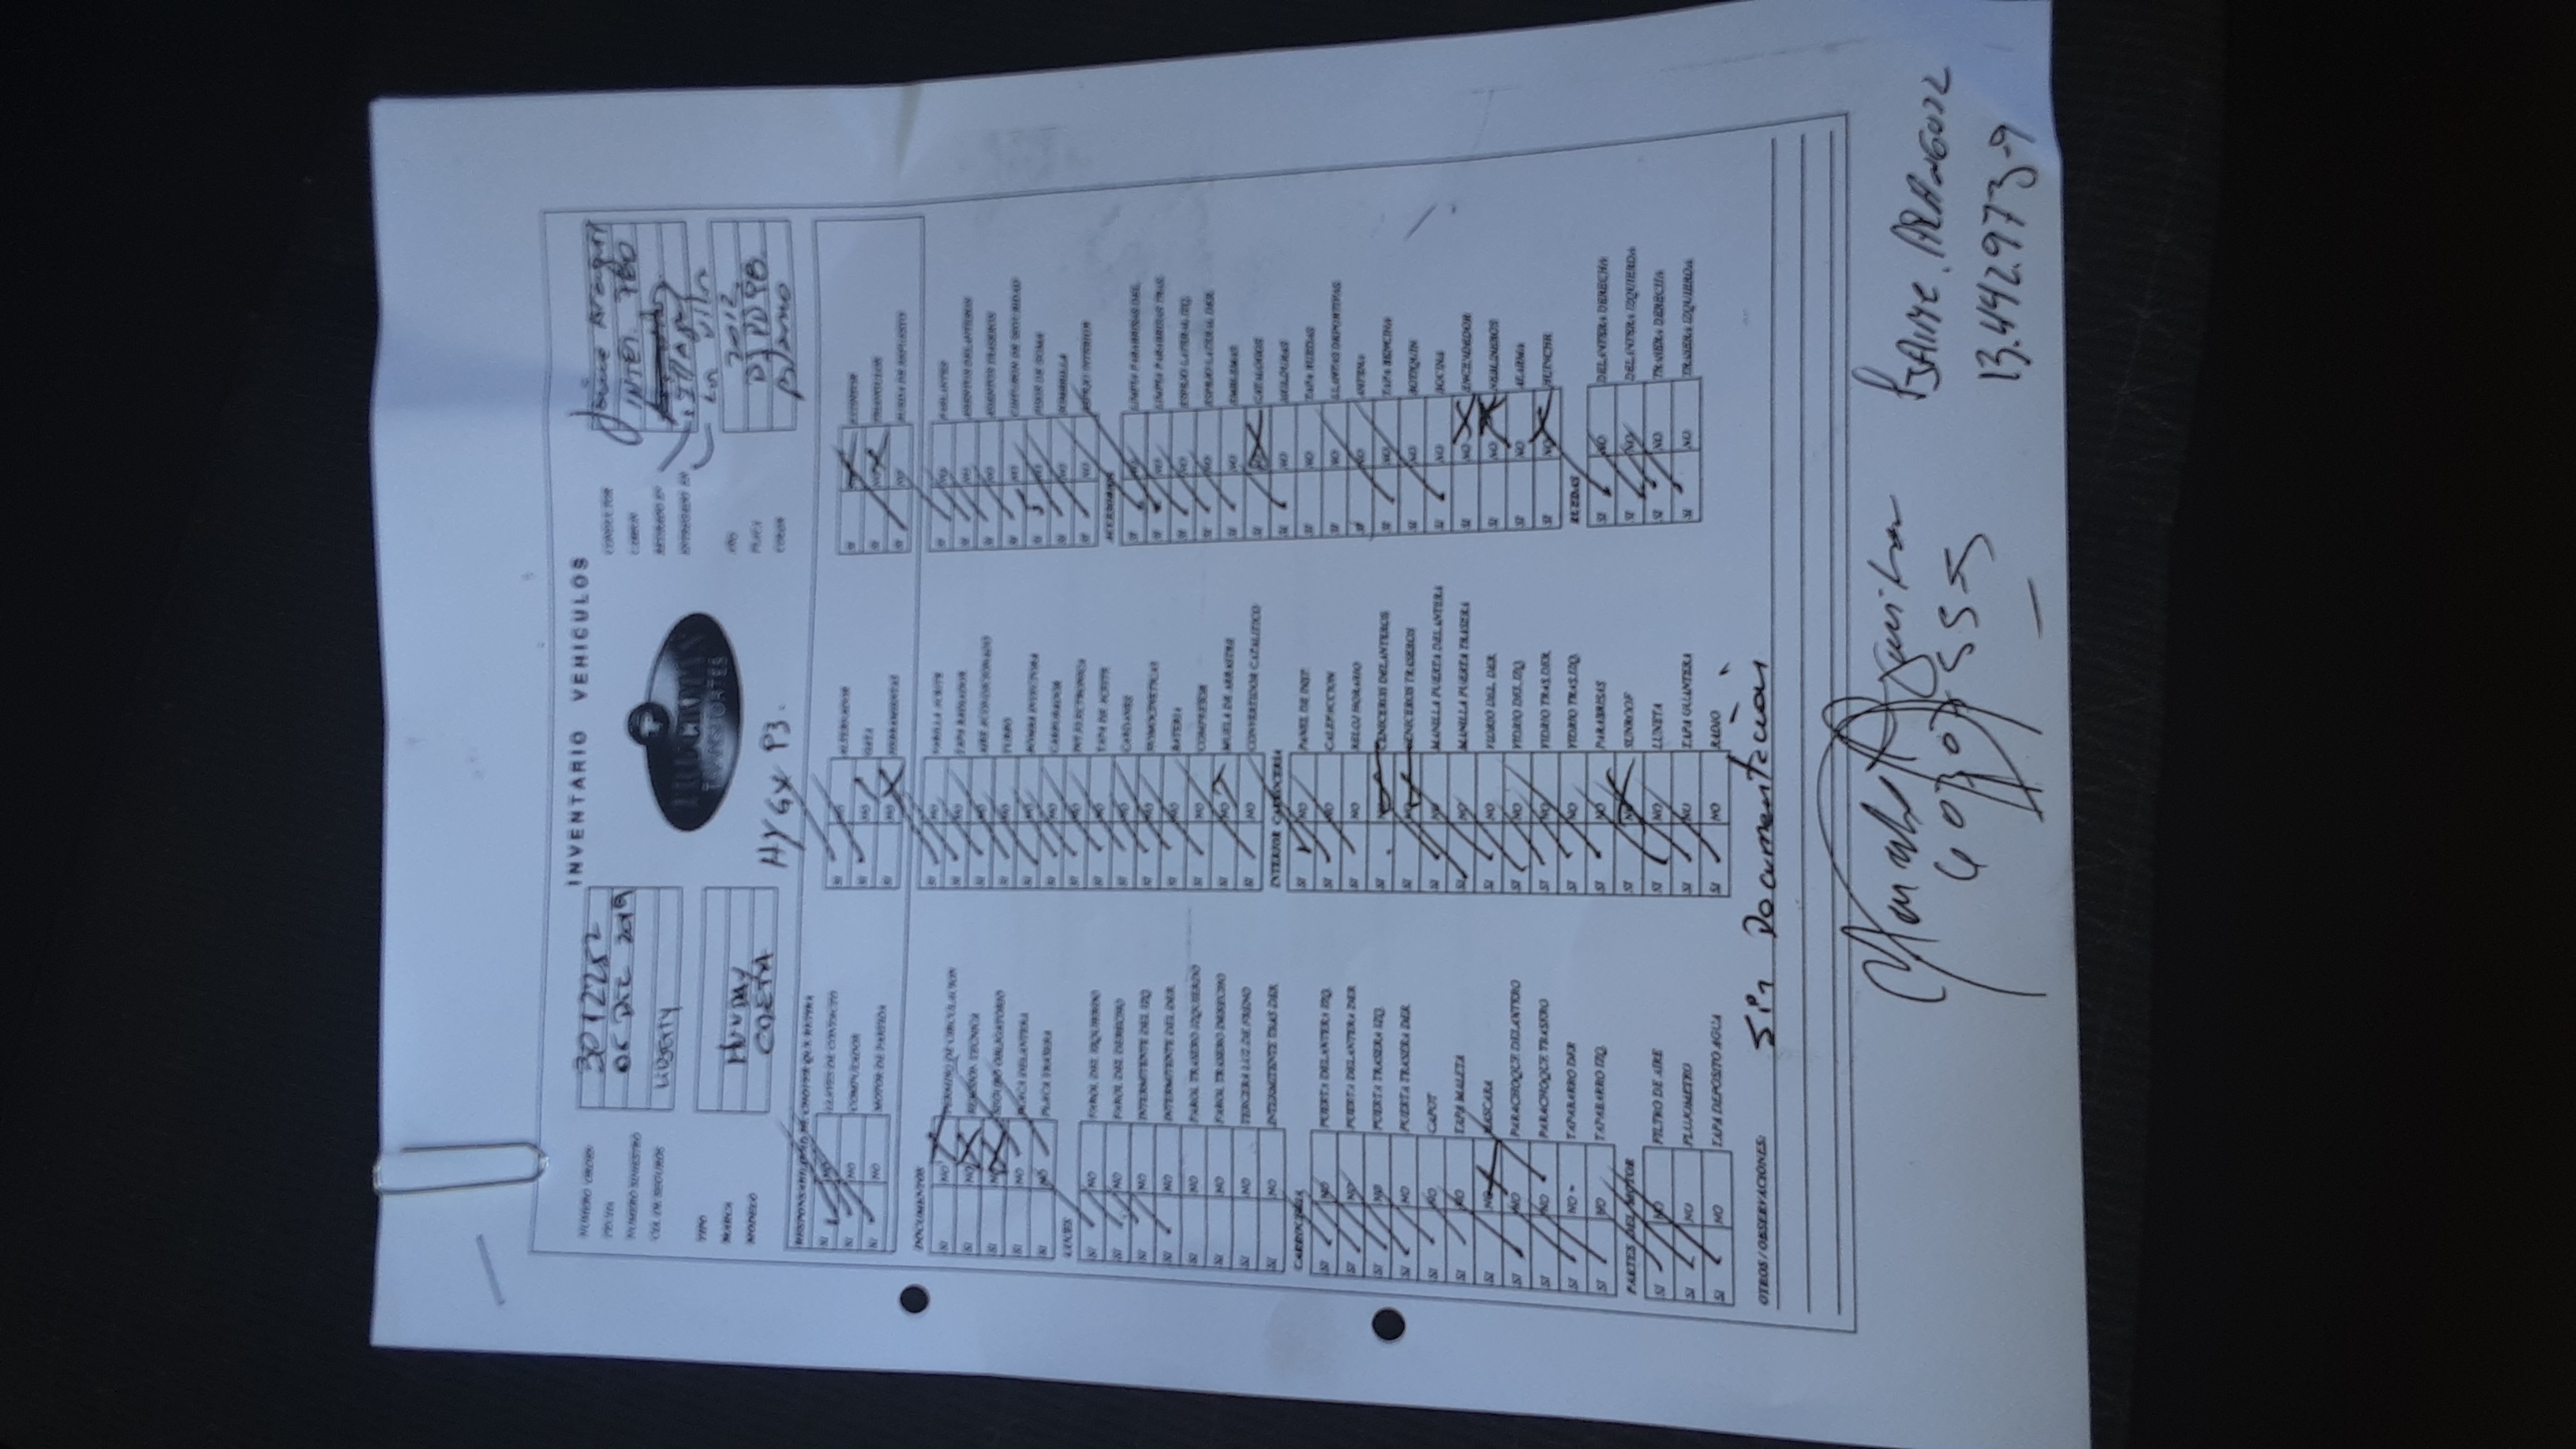 INVENTARIO VEHICULOS
NUMERO ORDEN 3017252
FECHA 05 DIC 2019
NUMERO SINIESTRO
CIA DE SEGUROS LIBERTY
TIPO
MARCA
MODELO
TRANSPORTES
CONDUCTOR
CORREO
RETIRADO EN
ENTREGADO EN
AÑO 2012
PLACA
COLOR Blanco
SI NO COMPUTADOR
SI NO MOTOR DE PARTIDA
SI NO ALTERNADOR
SI NO GATA
SI NO HERRAMIENTAS
SI NO RUEDA DE REPUESTO
DOCUMENTOS
SI NO PERMISO DE CIRCULACION
SI NO REVISION TECNICA
SI NO SEGURO OBLIGATORIO
SI NO PLACA DELANTERA
SI NO PLACA TRASERA
LUCES
SI NO FAROL DEL IZQUIERDO
SI NO FAROL DEL DERECHO
SI NO INTERMITENTE DEL IZQ
SI NO INTERMITENTE DEL DER
SI NO FAROL TRASERO IZQUIERDO
SI NO FAROL TRASERO DERECHO
SI NO TERCERA LUZ DE FRENO
SI NO INTERMITENTE TRAS DER
CARROCERIA
SI NO PUERTA DELANTERA IZQ.
SI NO PUERTA DELANTERA DER
SI NO PUERTA TRASERA IZQ.
SI NO PUERTA TRASERA DER
SI NO CAPOT
SI NO TAPA MALETA
SI NO MASCARA
SI NO PARACHOQUE DELANTERO
SI NO PARACHOQUE TRASERO
SI NO TAPABARRO DER
SI NO TAPABARRO IZQ.
PARTES DEL MOTOR
SI NO FILTRO DE AIRE
SI NO FLUJOMETRO
SI NO TAPA DEPOSITO AGUA
SI NO VARILLA ACEITE
SI NO TAPA RADIADOR
SI NO AIRE ACONDICIONADO
SI NO TURBO
SI NO BOMBA INYECTORA
SI NO CARBURADOR
SI NO INY. ELECTRONICA
SI NO TAPA DE ACEITE
SI NO CARDANES
SI NO HOMOCINETICAS
SI NO BATERIA
SI NO COMPRESOR
SI NO MUELA DE ARRASTRE
SI NO CONVERTIDOR CATALITICO
INTERIOR CARROCERIA
SI NO PANEL DE INST.
SI NO CALEFACCION
SI NO RELOJ HORARIO
SI NO CENICEROS DELANTEROS
SI NO CENICEROS TRASEROS
SI NO MANILLA PUERTA DELANTERA
SI NO MANILLA PUERTA TRASERA
SI NO VIDRIO DEL DER.
SI NO VIDRIO DEL IZQ.
SI NO VIDRIO TRAS DER
SI NO VIDRIO TRAS IZQ.
SI NO PARABRISAS
SI NO SUNROOF
SI NO LUNETA
SI NO TAPA GUANTERA
SI NO RADIO
SI NO PARLANTES
SI NO ASIENTOS DELANTEROS
SI NO ASIENTOS TRASEROS
SI NO CINTURON DE SEGURIDAD
SI NO PISOS DE GOMA
SI NO ESPEJO INTERIOR
ACCESORIOS
SI NO LIMPIA PARABRISAS DEL.
SI NO LIMPIA PARABRISAS TRAS.
SI NO ESPEJO LATERAL IZQ.
SI NO ESPEJO LATERAL DER.
SI NO EMBLEMAS
SI NO CATALOGOS
SI NO MOLDURAS
SI NO TAPA RUEDAS
SI NO LLANTAS DEPORTIVAS
SI NO ANTENA
SI NO TAPA BENCINA
SI NO BOTIQUIN
SI NO BOCINA
SI NO ENCENDEDOR
SI NO NEBLINEROS
SI NO ALARMA
SI NO HUINCHE
RUEDAS
SI NO DELANTERA DERECHA
SI NO DELANTERA IZQUIERDA
SI NO TRASERA DERECHA
SI NO TRASERA IZQUIERDA
OTROS / OBSERVACIONES: Sin Documentación
13.442.973-9